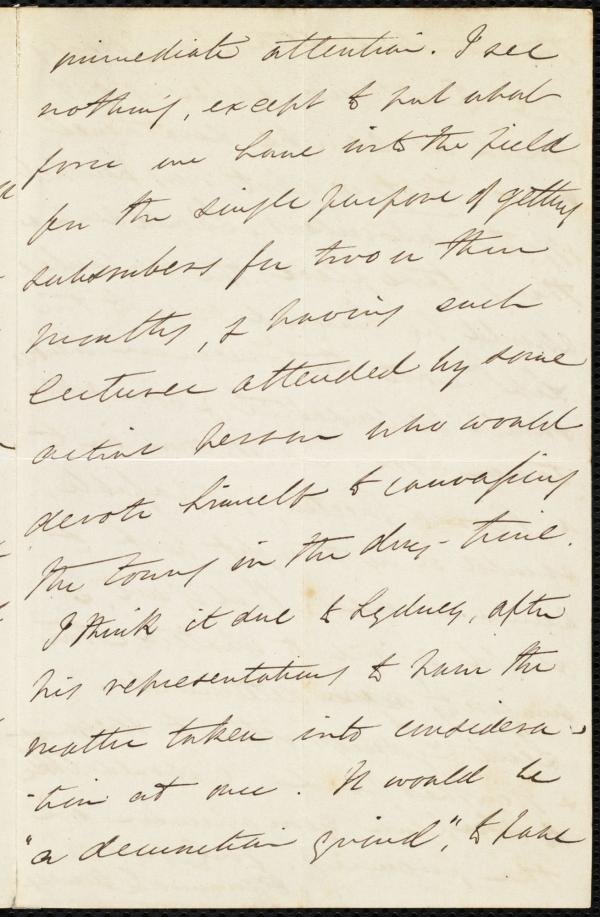 immediate attention. I see
nothing, except to put what
force we have into the field
for the single purpose of getting
subscribers for two or three
months, & having each
lecturer attended by some
active person who would
devote himself to canvassing
the towns in the day-time.
I think it due to Sydney, after
his representations to have the
matter taken into considera-
-tion at once. It would be
"a grind", to have